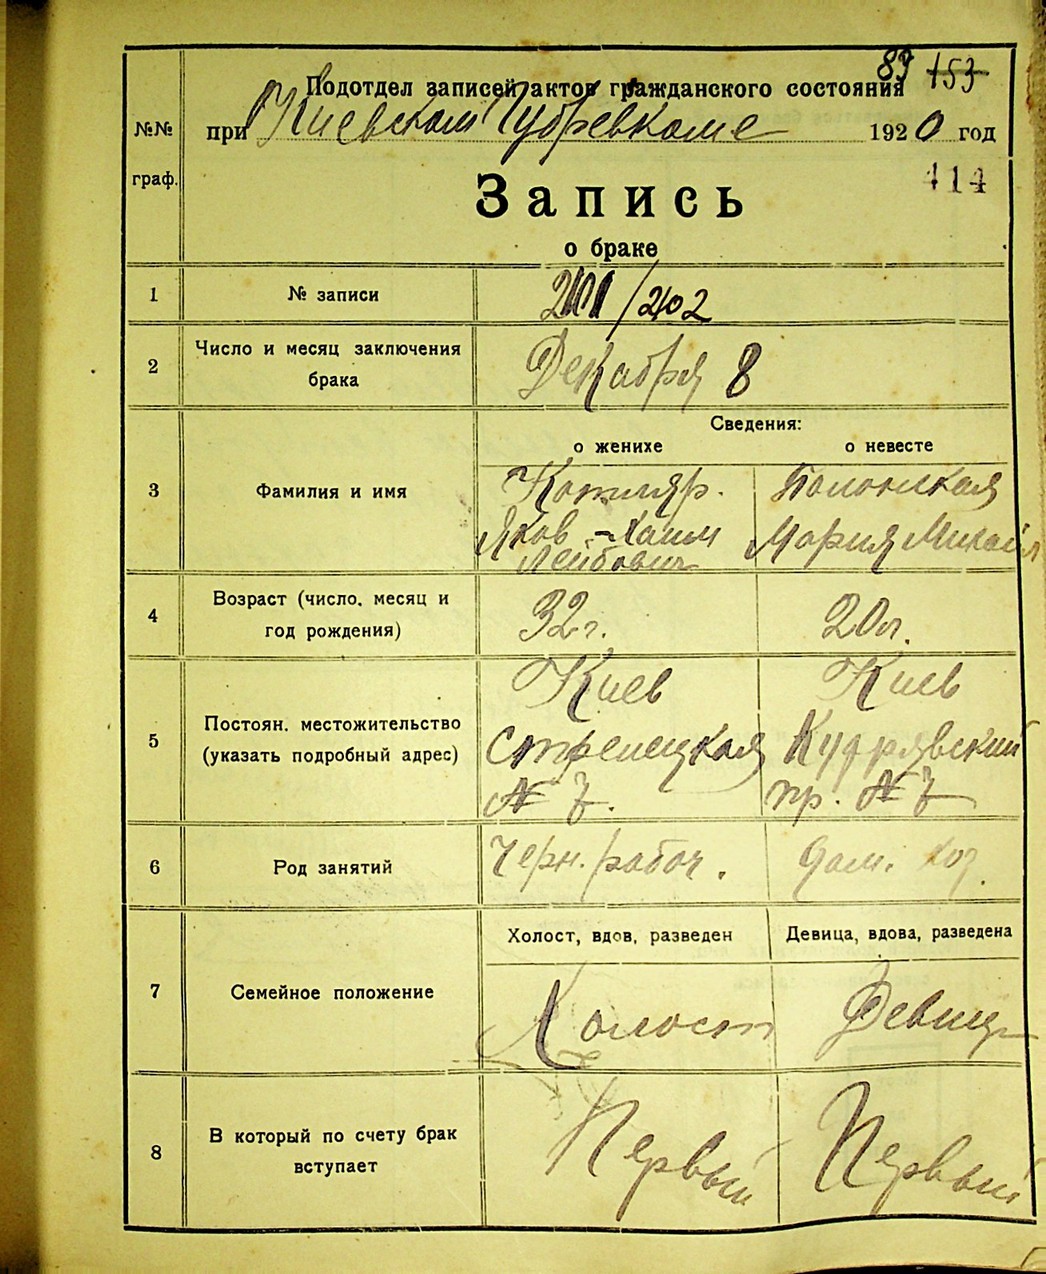 89 153
Подотдел записей актов гражданского состояния
№№ при Киевском Губревкоме 1920 год
граф. 414
Запись
о браке
1 № записи 202
2 Число и месяц заключения брака Декабря 8
Сведения:
о женихе о невесте
3 Фамилия и имя Котляр. Полонская
Яков-Хаим Мария Михайл
Лейбович
4 Возраст (число, месяц и 32 г. 20 л.
год рождения)
Киев Киев
5 Постоян. местожительство Стрелецкая Кудрявский
(указать подробный адрес) № пр. №
6 Род занятий Черн. рабоч. дом. хоз.
Холост, вдов, разведен Девица, вдова, разведена
7 Семейное положение Холост Девица
8 В который по счету брак Первый Первый
вступает